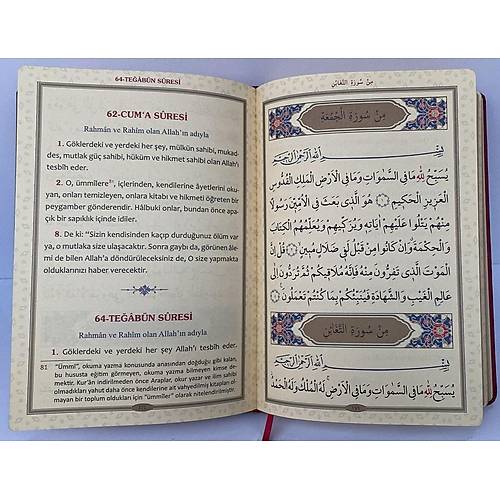 64-TEĞÂBÜN SÛRESİ
62-CUM'A SÛRESİ
Rahmân ve Rahîm olan Allah'ın adıyla
1. Göklerdeki ve yerdeki her şey, mülkün sahibi, mukad-
des, mutlak güç sahibi, hüküm ve hikmet sahibi olan Allah'ı
tesbîh eder.
2. O, ümmîlere⁸¹, içlerinden, kendilerine âyetlerini oku-
yan, onları temizleyen, onlara kitabı ve hikmeti öğreten bir
peygamber gönderendir. Hâlbuki onlar, bundan önce apa-
çık bir sapıklık içinde idiler.
8. De ki: "Sizin kendisinden kaçıp durduğunuz ölüm var
ya, o mutlaka size ulaşacaktır. Sonra gaybı da, görünen âle-
mi de bilen Allah'a döndürüleceksiniz de, O size yapmakta
olduklarınızı haber verecektir.
64-TEĞÂBÜN SÛRESİ
Rahmân ve Rahîm olan Allah'ın adıyla
1. Göklerdeki ve yerdeki her şey Allah'ı tesbîh eder,
81 "Ümmî", okuma yazma konusunda anasından doğduğu gibi kalan,
bu hususta eğitim görmeyen, okuma yazma bilmeyen kimse de-
mektir. Kur'ân indirilmeden önce Araplar, okur yazar ve ilim sahibi
olmadıkları yahut daha önce kendilerine ait vahyedilmiş kitapları ol-
mayan bir toplum oldukları için "ümmîler" olarak nitelendirilmiştir.
مِنْ سُورَةِ التَّغَابُنِ
مِنْ سُورَةِ الْجُمُعَةِ
بِسْمِ اللّٰهِ الرَّحْمٰنِ الرَّحِيمِ
يُسَبِّحُ لِلّٰهِ مَا فِي السَّمٰوَاتِ وَمَا فِي الْاَرْضِ الْمَلِكِ الْقُدُّوسِ
الْعَزِيزِ الْحَكِيمِ ﴿١﴾ هُوَ الَّذِي بَعَثَ فِي الْاُمِّيّ۪نَ رَسُولًا
مِنْهُمْ يَتْلُوا عَلَيْهِمْ اٰيَاتِهِ وَيُزَكِّيهِمْ وَيُعَلِّمُهُمُ الْكِتَابَ
وَالْحِكْمَةَ وَاِنْ كَانُوا مِنْ قَبْلُ لَفِي ضَلَالٍ مُبِينٍ ﴿٢﴾ قُلْ اِنَّ
الْمَوْتَ الَّذِي تَفِرُّونَ مِنْهُ فَاِنَّهُ مُلَاقِيكُمْ ثُمَّ تُرَدُّونَ اِلٰى
عَالِمِ الْغَيْبِ وَالشَّهَادَةِ فَيُنَبِّئُكُمْ بِمَا كُنْتُمْ تَعْمَلُونَ ﴿٨﴾
مِنْ سُورَةِ التَّغَابُنِ
بِسْمِ اللّٰهِ الرَّحْمٰنِ الرَّحِيمِ
يُسَبِّحُ لِلّٰهِ مَا فِي السَّمٰوَاتِ وَمَا فِي الْاَرْضِ لَهُ الْمُلْكُ وَلَهُ الْحَمْدُ